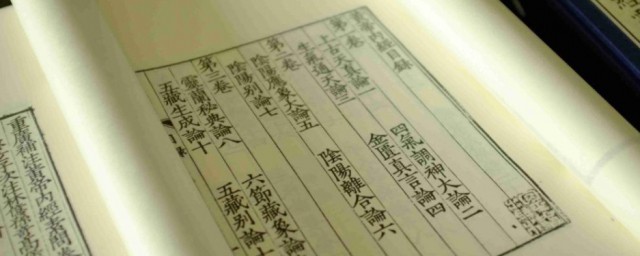 目錄
第一卷
上古天真論一 四氣調神大論二
生氣通天論三 金匱真言論四
第二卷
陰陽應象大論五 陰陽離合論六
陰陽别論七
第三卷
靈蘭秘典論八 六節藏象論
五藏生成論十 五藏别論十
重廣補注黃帝內經素問卷